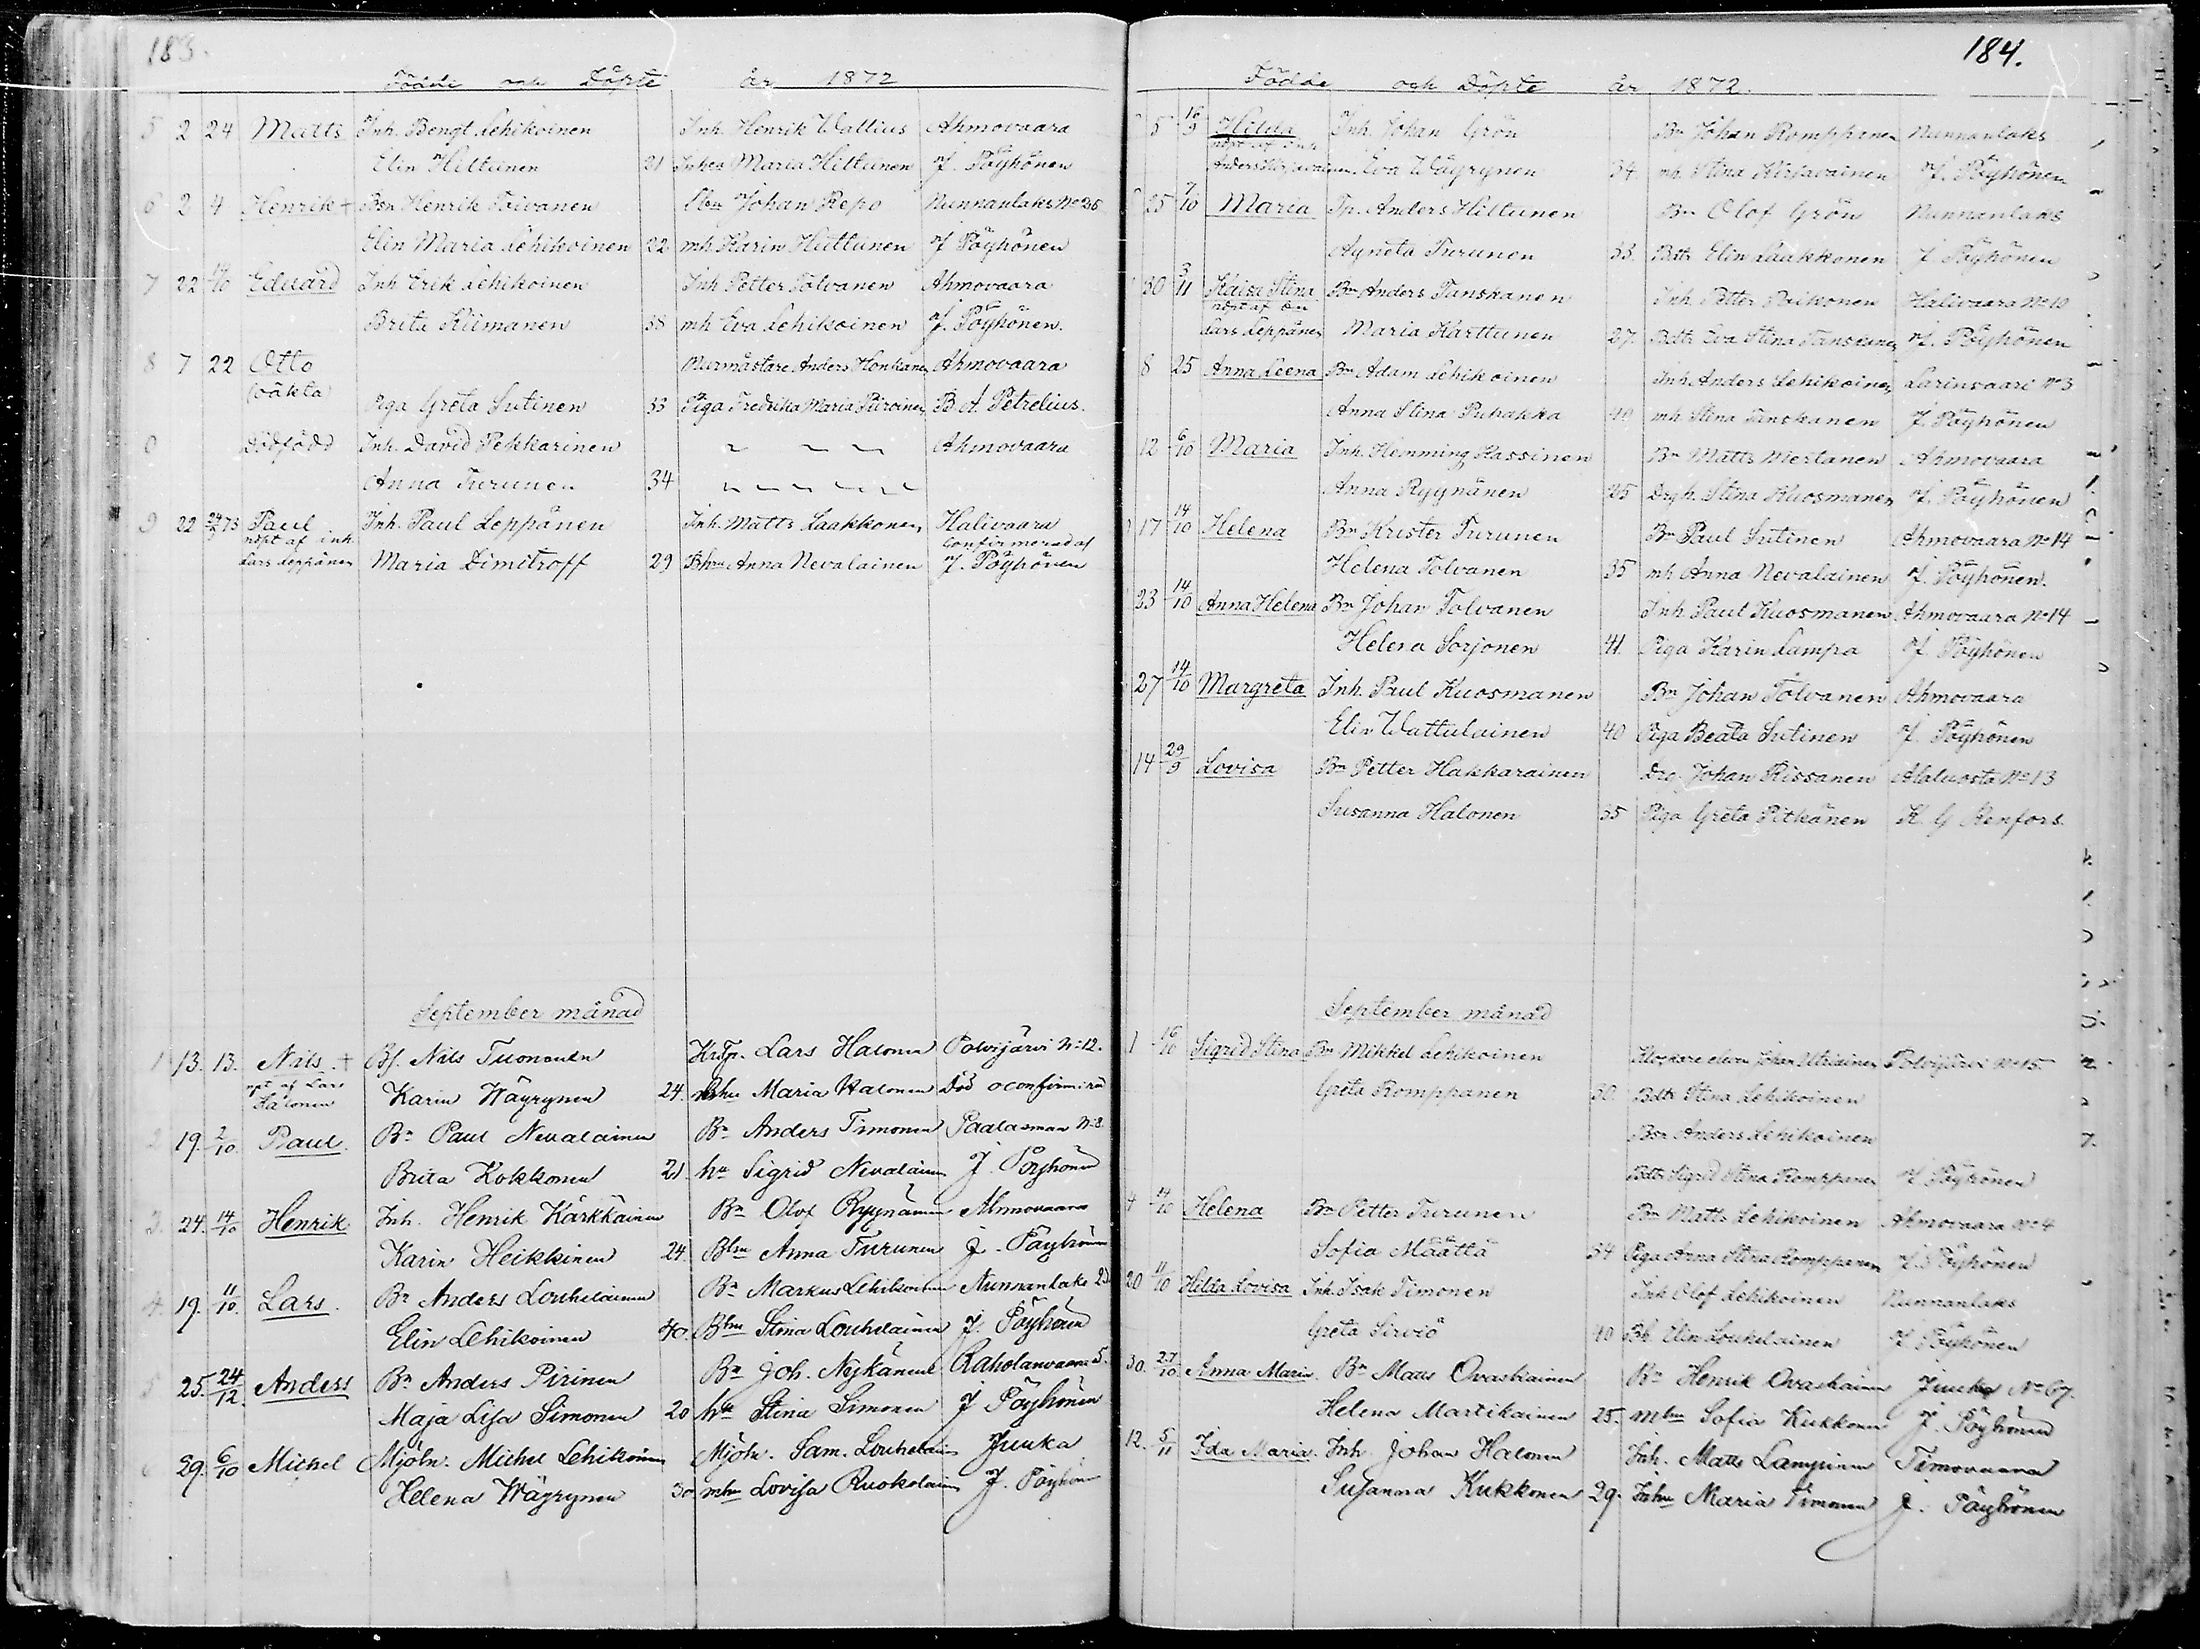 183.
Födde och Döpte år 1872
5 2 24 Matts Inh. Bengt Lehikoinen Inh. Henrik Wallius Ahmovaara
Elin Hiltunen 21 Maria Hiltunen J. Pöyhönen
6 2 4 Henrik + Bsn Henrik Toivanen Johan Repo Nunnanlaks No 26
Elin Maria Lehikoinen 22 mh. Karin Huttunen J. Pöyhönen
7 22 14/10 Eduard Inh. Erik Lehikoinen Inh Petter Tolvanen Ahmovaara
Brita Kiimanen 38 mh Eva Lehikoinen J. Pöyhönen.
8 7 22 Otto Murmästare Anders Honkanen Ahmovaara
(oäkta) Piga Greta Sutinen 33 Piga Fredrika Maria Piiroinen B. A. Petrelius.
Dödfödd Inh. David Pekkarinen Ahmovaara
Anna Turunen 34
9 22 Paul Inh. Paul Leppänen Inh. Matts Laakkonen Halivaara
nöpt af inh. confirmerad af
Lars Leppänen Maria Dimitroff 29 Anna Nevalainen J. Pöyhönen
September månad
1 13. 13. Nils + Bs. Nils Tuononen Lars Halonen Polvijärvi No 12.
af Lars Halonen Karin Wäyrynen 24. Maria Halonen Död oconfirmerad
2 19. 2/10. Paul. Bn Paul Nevalainen Bn Anders Timonen Paalasmaa No 8
Brita Kokkonen 21 hu Sigrid Nevalainen J. Pöyhönen
3. 24. 14/10 Henrik Inh. Henrik Kärkkäinen Bn Olof Ryynänen Ahmovaara
Karin Heikkinen 24. Anna Turunen J. Pöyhönen
4. 19. 11/10. Lars. Bn Anders Louhelainen Bn Markus Lehikoinen Nunnanlaks 23
Elin Lehikoinen 40. Stina Louhelainen J. Pöyhönen
5 25. 24/12. Anders Bn Anders Pirinen Bn Joh. Nykänen Raholanvaara 5.
Maja Lisa Simonen 20 hu Stina Simonen J Pöyhönen
29. 6/10 Michel Mjöln. Michel Lehikoinen Mjöln. Sam. Louhelainen Juuka
Helena Wäyrynen 30 Lovisa Ruokolainen J. Pöyhönen
184.
Födde och Döpte år 1872.
5 16/9 Hilda Inh. Johan Grön Bn Johan Romppanen Nunnanlaks
nöpt af Inh
Anders Eva Wäyrynen 34 mh. Stina Hirsavainen J. Pöyhönen
25 7/10 Maria Tp. Anders Hiltunen Bn Olof Grön Nunnanlaks
Agneta Turunen 33 Bdtr Elin Laakkonen J. Pöyhönen
30 3/11 Kaisa Stina Bn Anders Tanskanen Inh. Petter Halivaara No 10
nöpt af
Lars Leppänen Maria Karttunen 27. Bdtr Eva Stina Tanskanen J. Pöyhönen
8 25 Anna Leena Bn Adam Lehikoinen Inh. Anders Lehikoinen Larinsaari No 3
Anna Stina Puhakka 40 mh Stina Tanskanen J. Pöyhönen
12 6/10 Maria Inh. Hemming Hassinen Bn Matts Mertanen Ahmovaara
Anna Ryynänen 25 Drgh. Stina Kuosmanen J. Pöyhönen
17 14/10 Helena Bn Krister Turunen Bn Paul Sutinen Ahmovaara No 14
Helena Tolvanen 35 mh Anna Nevalainen J. Pöyhönen.
23 14/10 Anna Helena Bn Johan Tolvanen Inh. Paul Kuosmanen Ahmovaara No 14
Helena Sorjonen 41. Piga Karin Lampa J. Pöyhönen
27 14/10 Margreta Inh. Paul Kuosmanen Bn Johan Tolvanen Ahmovaara
Elin Wattulainen 40 Piga Beata Sutinen J. Pöyhönen
14 29/9 Lovisa Bn Petter Hakkarainen Drg. Johan Rissanen Alaluosta No 13
Susanna Halonen 35 Piga Greta Pitkänen K. G Renfors.
September månad
1 16/10 Sigrid Stina Bn Mikkel Lehikoinen Klockare eleven Johan Polvijärvi No 15.
Greta Romppanen 30. Bdtr Stina Lehikoinen
Bsn Anders Lehikoinen
Bdtr Sigrid Stina Romppanen J. Pöyhönen
4 14/10 Helena Bn Petter Turunen Bn Matts Lehikoinen Ahmovaara No 4
Sofia Määttä 34 Piga Anna Stina Romppanen J. Pöyhönen
20 11/10 Hilda Lovisa Inh. Isak Timonen Inh Olof Lehikoinen Nunnanlaks
Greta Sirviö 40 Bh. Elin Louhelainen J Pöyhönen
30. 27/10. Anna Maria. Bn Matts Ovaskainen Bn Henrik Ovaskainen Juuka No 67.
Helena Martikainen 25. Sofia Kukkonen J. Pöyhönen
12. 5/11 Ida Maria. Inh. Johan Halonen Inh. Matts Lampinen Timovaara
Susanna Kukkonen 29. Maria Timonen J. Pöyhönen